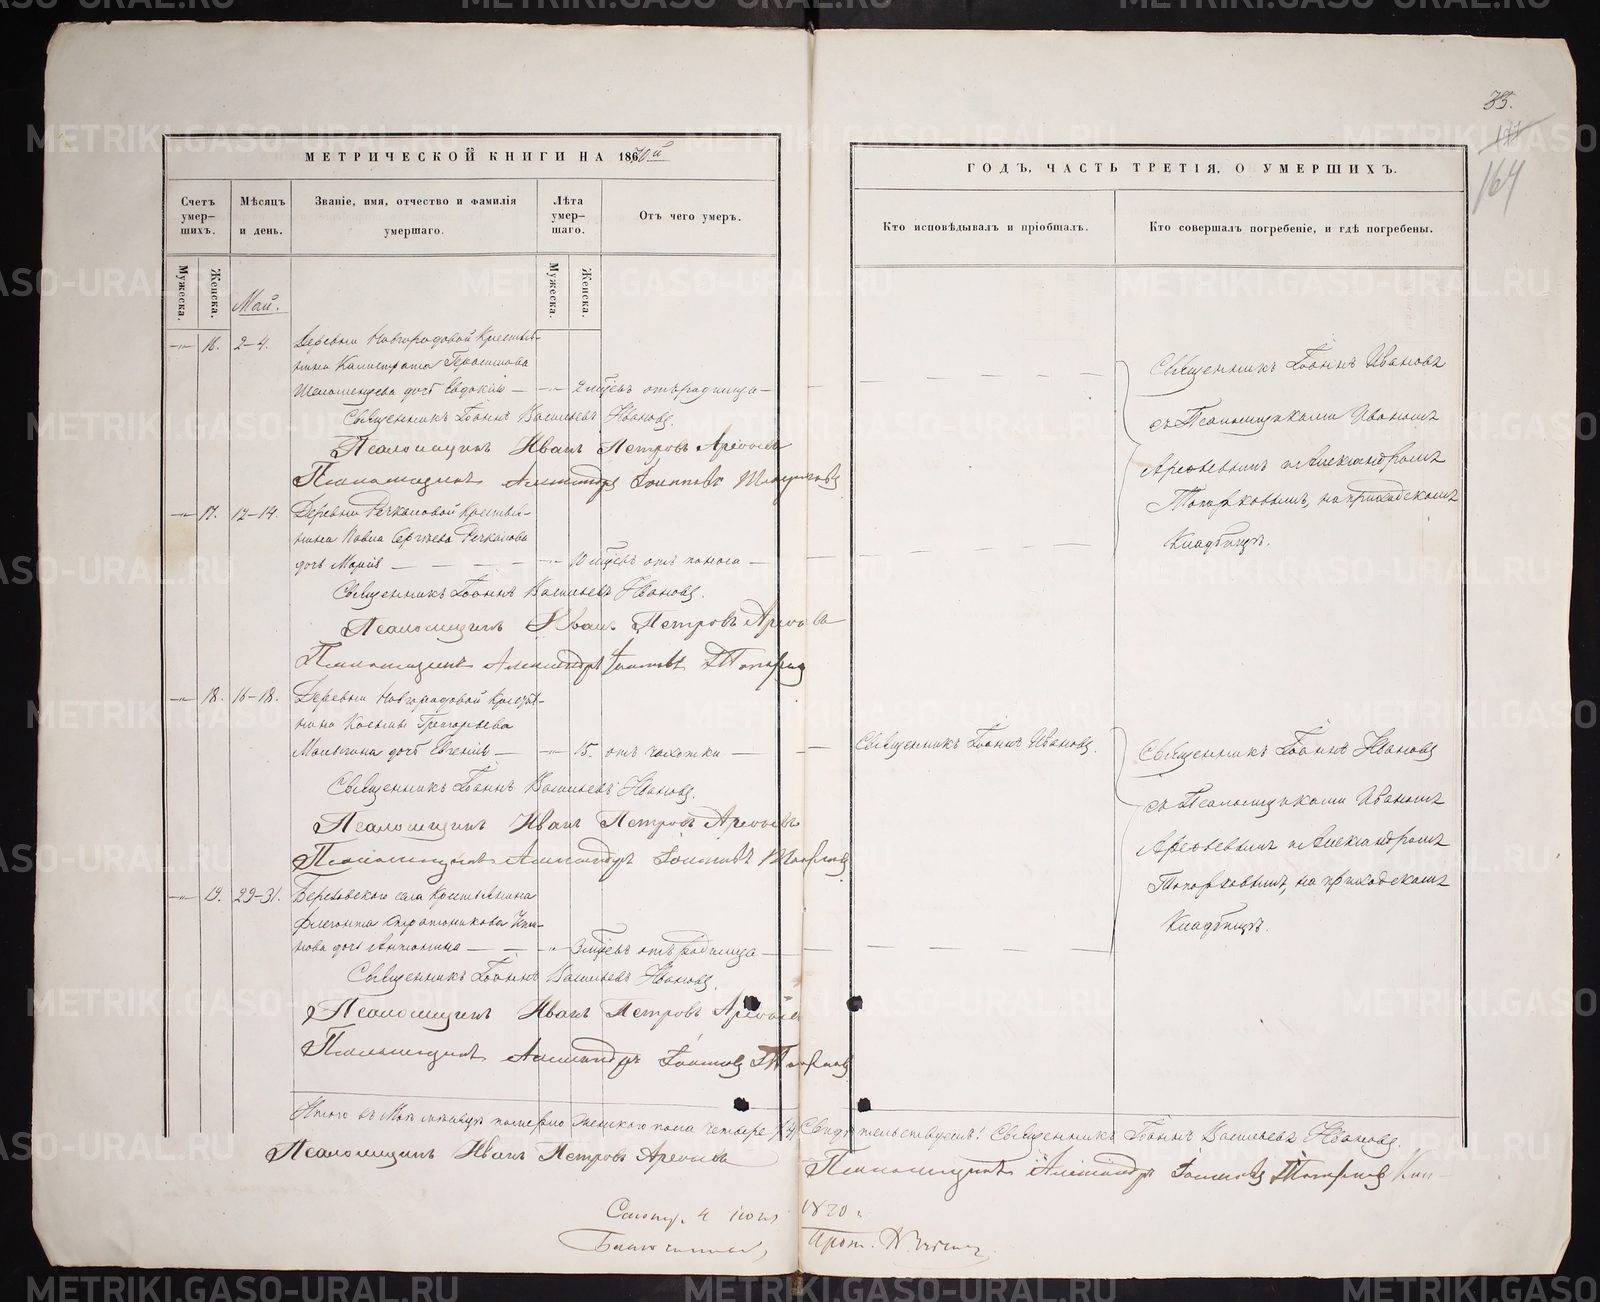 35.
164
МЕТРИЧЕСКОЙ КНИГИ НА 1870й
ГОДЪ, ЧАСТЬ ТРЕТІЯ, О УМЕРШИХЪ.
Счетъ умер-шихъ.
Мѣсяцъ и день.
Званіе, имя, отчество и фамилія умершаго.
Лѣта умер-шаго.
Отъ чего умеръ.
Кто исповѣдывалъ и пріобщалъ.
Кто совершалъ погребеніе, и гдѣ погребены.
Мужеска.
Женска.
Мужеска.
Женска.
Май.
16. 2-4. Деревни Новгородовой Крестья-
нина Калистрата Герасимова
дочь Евдокія 2 мѣсяцъ отъ родимца
Священникъ Іоаннъ Васильевъ Ивановъ.
Псаломщикъ Иванъ Петровъ Арефьевъ
Псаломщикъ Александръ Іоанновъ Топорковъ
Священникъ Іоаннъ Ивановъ
съ Псаломщиками Иваномъ
Арефьевымъ и Александромъ
Топорковымъ, на приходскомъ
Кладбищѣ.
17. 12-14. Деревни Речкаловой Крестья-
нина Павла Сергѣева Речкалова
дочь Марія 10 мѣсяцъ отъ поноса
Священникъ Іоаннъ Васильевъ Ивановъ.
Псаломщикъ Иванъ Петровъ Арефьевъ
Псаломщикъ Александръ Іоанновъ Топорковъ
18. 16-18. Деревни Новгородовой Крестья-
нина Косьмы Григорьева
Мальгина дочь Евгенія 15. отъ чахотки
Священникъ Іоаннъ Ивановъ.
Священникъ Іоаннъ Васильевъ Ивановъ.
Псаломщикъ Иванъ Петровъ Арефьевъ
Псаломщикъ Александръ Іоанновъ Топорковъ
Священникъ Іоаннъ Ивановъ
съ Псаломщиками Иваномъ
Арефьевымъ и Александромъ
Топорковымъ, на приходскомъ
Кладбищѣ.
19. 29-31. Села Крестьянина
дочь Антонина 3 мѣсяцъ отъ родимца
Священникъ Іоаннъ Васильевъ Ивановъ.
Псаломщикъ Иванъ Петровъ Арефьевъ
Псаломщикъ Александръ Іоанновъ Топорковъ
Итого въ Маѣ мѣсяцѣ померло женскаго пола четыре /4/ Свидѣтельствуемъ: Священникъ Іоаннъ Васильевъ Ивановъ.
Псаломщикъ Иванъ Петровъ Арефьевъ
Псаломщикъ Александръ Іоанновъ Топорковъ
4 іюня 1870 г.
Благочинный, Прот.
METRIKI.GASO-URAL.RU